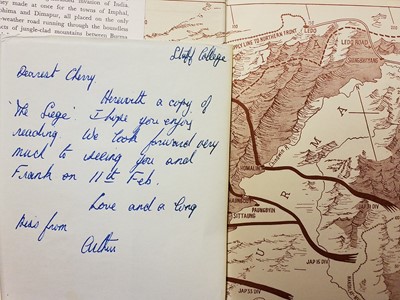 invasion of India.
they made at once for the towns of Imphal,
Kohima and Dimapur, all placed on the only
weather road running through the boundless
tracts of jungle-clad mountains between Burma
Staff College
Dearest Cherry
Herewith a copy of
'The Siege'. I hope you enjoy
reading. We look forward very
much to seeing you and
Frank on 11th Feb.
Love and a long
kiss from
Arthur
SUPPLY LINE TO NORTHERN FRONT
LEDO
LEDO ROAD
SHINGBWIYANG
BURMA
HOMALIN
PAUNGBYIN
SITTAUNG
JAP 15 DIV
JAP 31 DIV